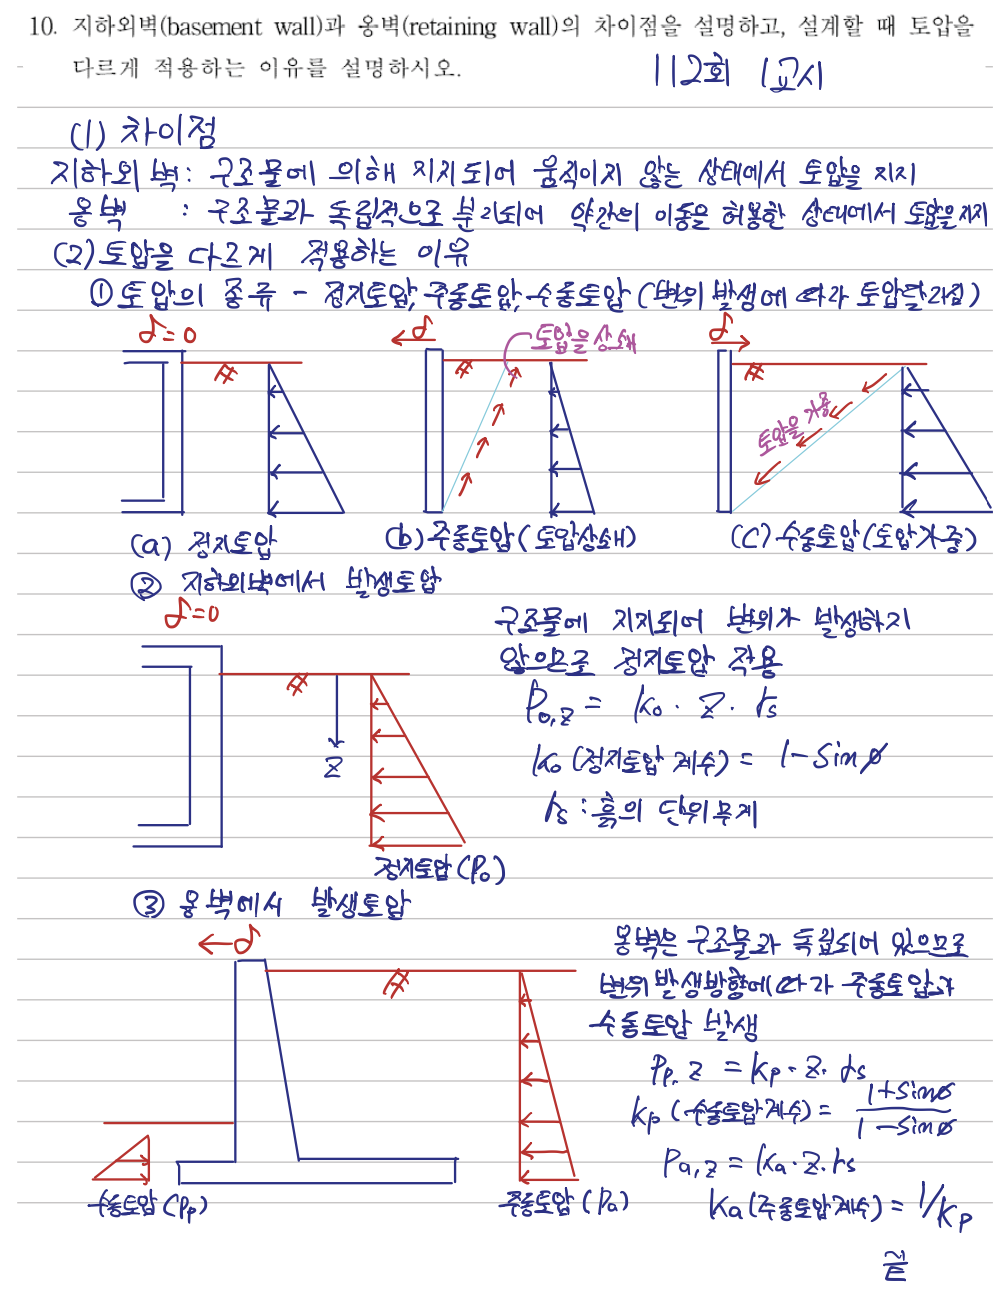 10. 지하외벽(basement wall)과 옹벽(retaining wall)의 차이점을 설명하고, 설계할 때 토압을
다르게 적용하는 이유를 설명하시오.
112회 1교시
(1) 차이점
지하외벽 : 구조물에 의해 지지되어 움직이지 않는 상태에서 토압을 지지
옹벽 : 구조물과 독립적으로 분리되어 약간의 이동은 허용한 상태에서 토압을 지지
(2) 토압을 다르게 적용하는 이유
① 토압의 종류 - 정지토압, 주동토압, 수동토압 (변위 발생에 따라 토압달라짐)
δ=0
δ
토압을 상쇄
δ
토압을 가중
(a) 정지토압
(b) 주동토압 (토압상쇄)
(c) 수동토압 (토압가중)
② 지하외벽에서 발생토압
δ=0
Z
정지토압 (P₀)
구조물에 지지되어 변위가 발생하지
않으므로 정지토압 작용
P₀,z = k₀ · Z · rs
k₀ (정지토압 계수) = 1 - sinø
rs : 흙의 단위무게
③ 옹벽에서 발생토압
δ
수동토압 (Pp)
주동토압 (Pa)
옹벽은 구조물과 독립되어 있으므로
변위 발생방향에 따라 주동토압과
수동토압 발생
Pp,z = kp · z · rs
kp (수동토압계수) = 1+sinø / 1-sinø
Pa,z = ka · z · rs
ka (주동토압계수) = 1/kp
끝